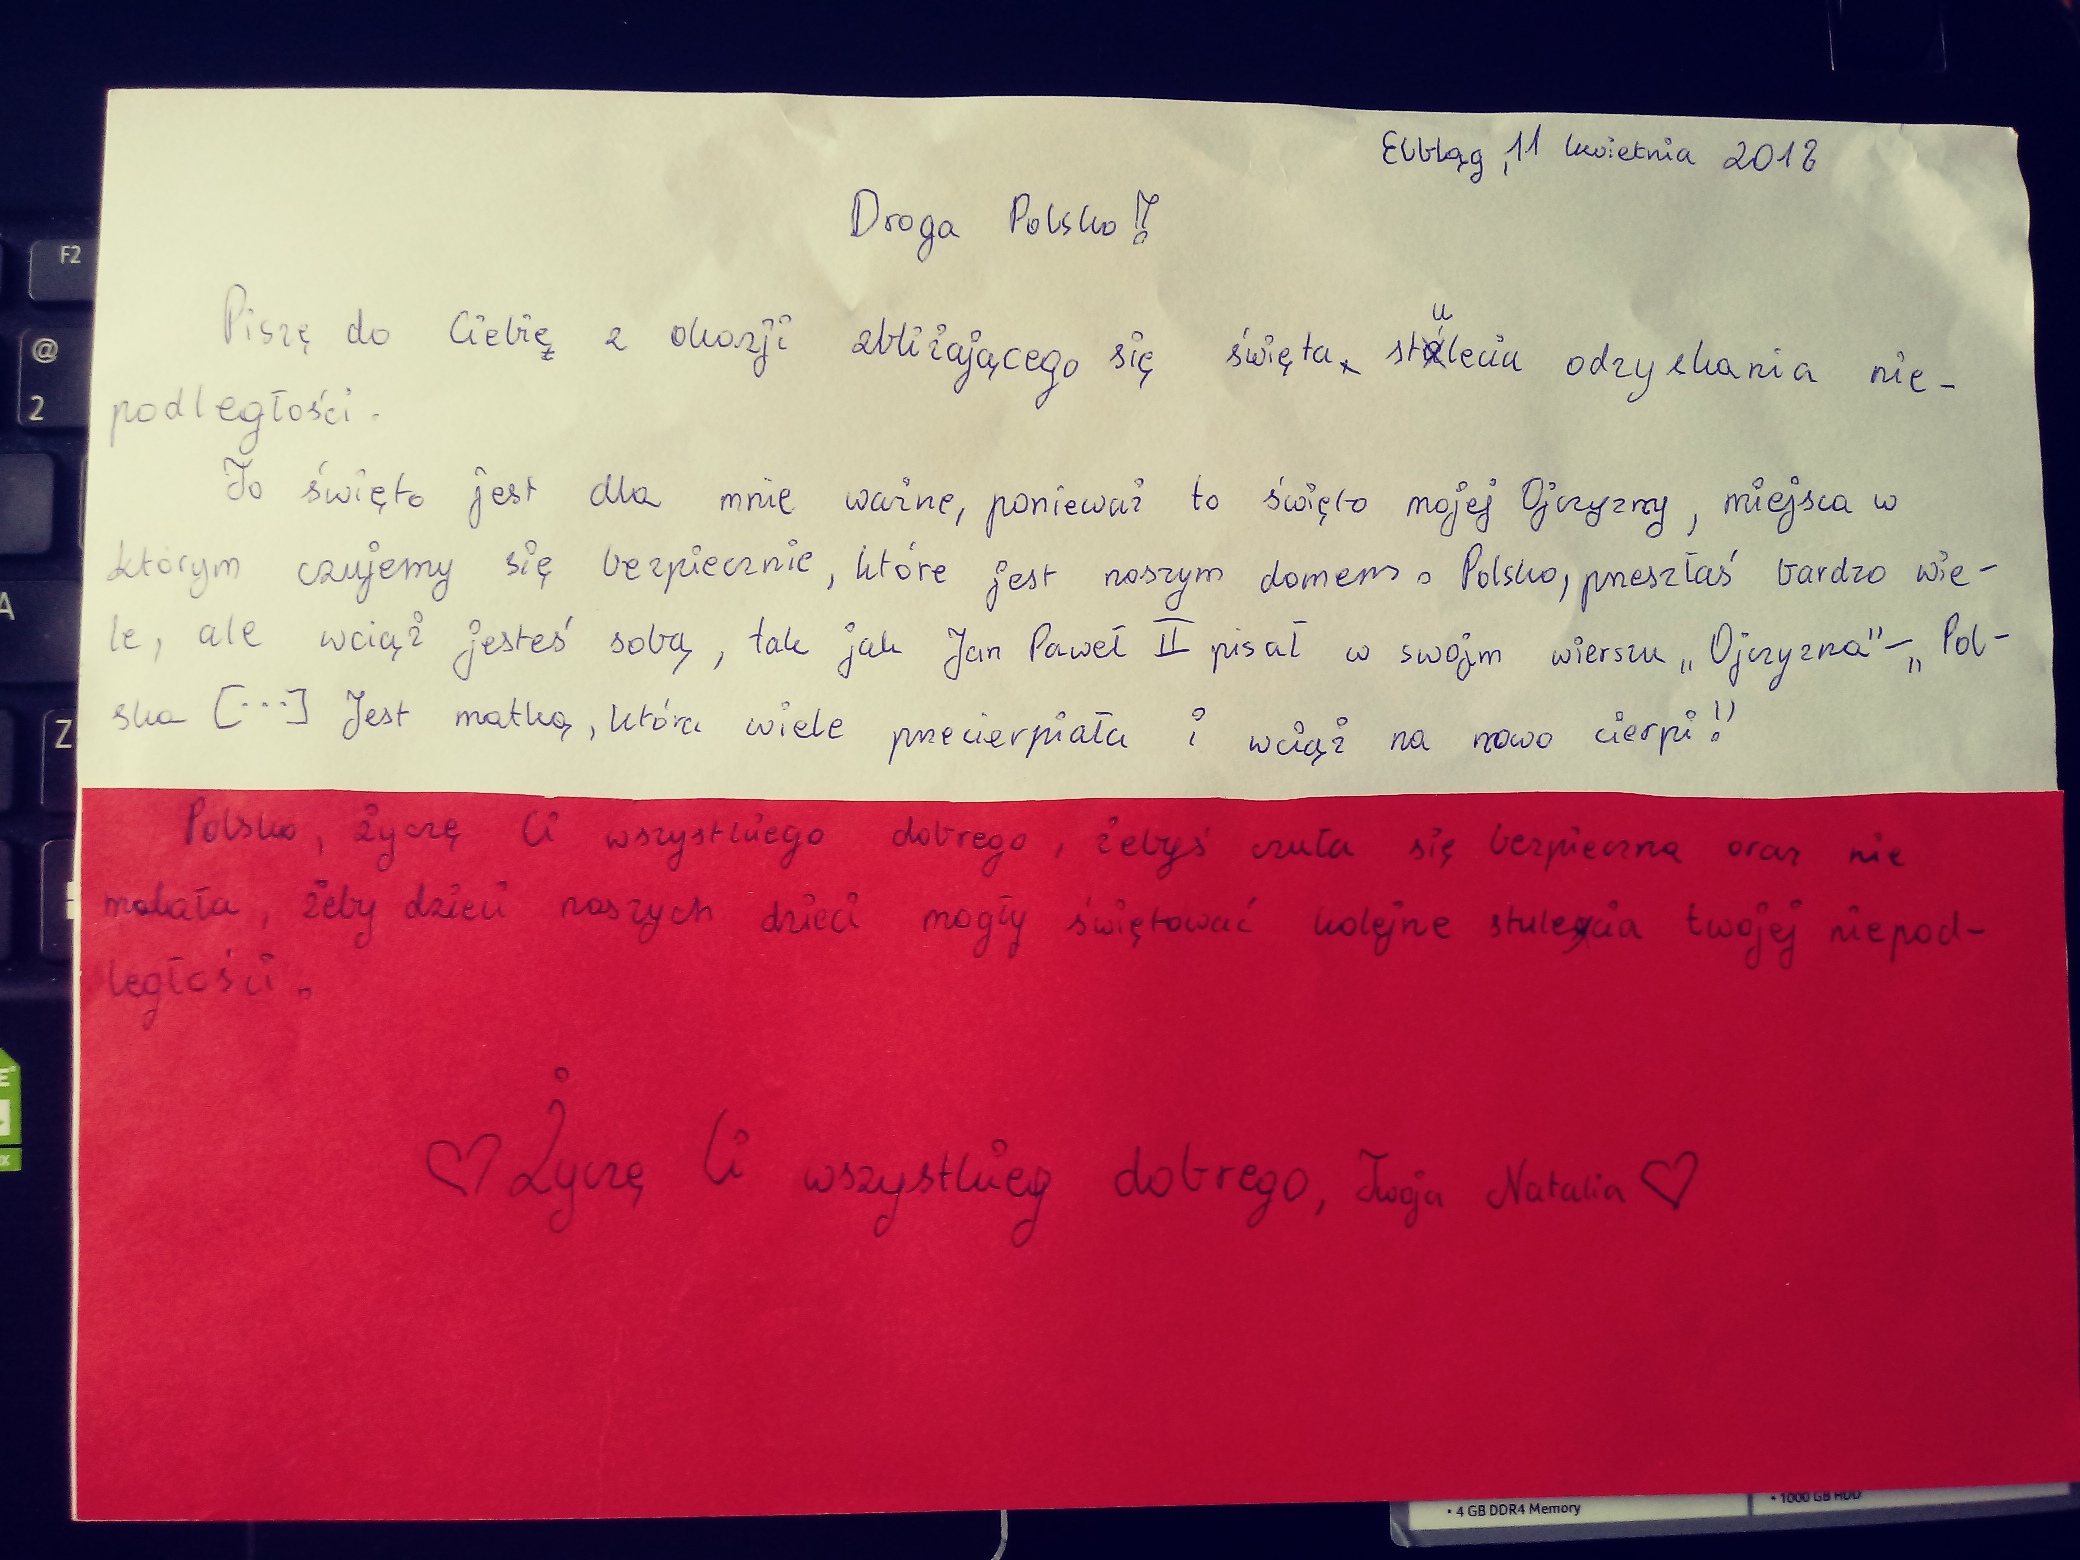 Elbląg, 11 kwietnia 2018
Droga Polsko!
Piszę do Ciebię z okazji zbliżającego się święta stulecia odzyskania nie-
podległości.
To święto jest dla mnie ważne, ponieważ to święto mojej Ojczyzny, miejsca w
którym czujemy się bezpiecznie, które jest naszym domem. Polsko, przeszłaś bardzo wie-
le, ale wciąż jesteś sobą, tak jak Jan Paweł II pisał w swojm wierszu „Ojczyzna"-„Pol-
ska [...] Jest matką, która wiele przecierpiała i wciąż na nowo cierpi"!
Polsko, życzę Ci wszystkiego dobrego, żebyś czuła się bezpieczna oraz nie
malała, żeby dzieci naszych dzieci mogły świętować kolejne stulecia twojej niepod-
ległości.
♡ Życzę Ci wszystkieg dobrego, Twoja Natalia ♡
F2
@
2
A
Z
• 4 GB DDR4 Memory
• 1000 GB HDD